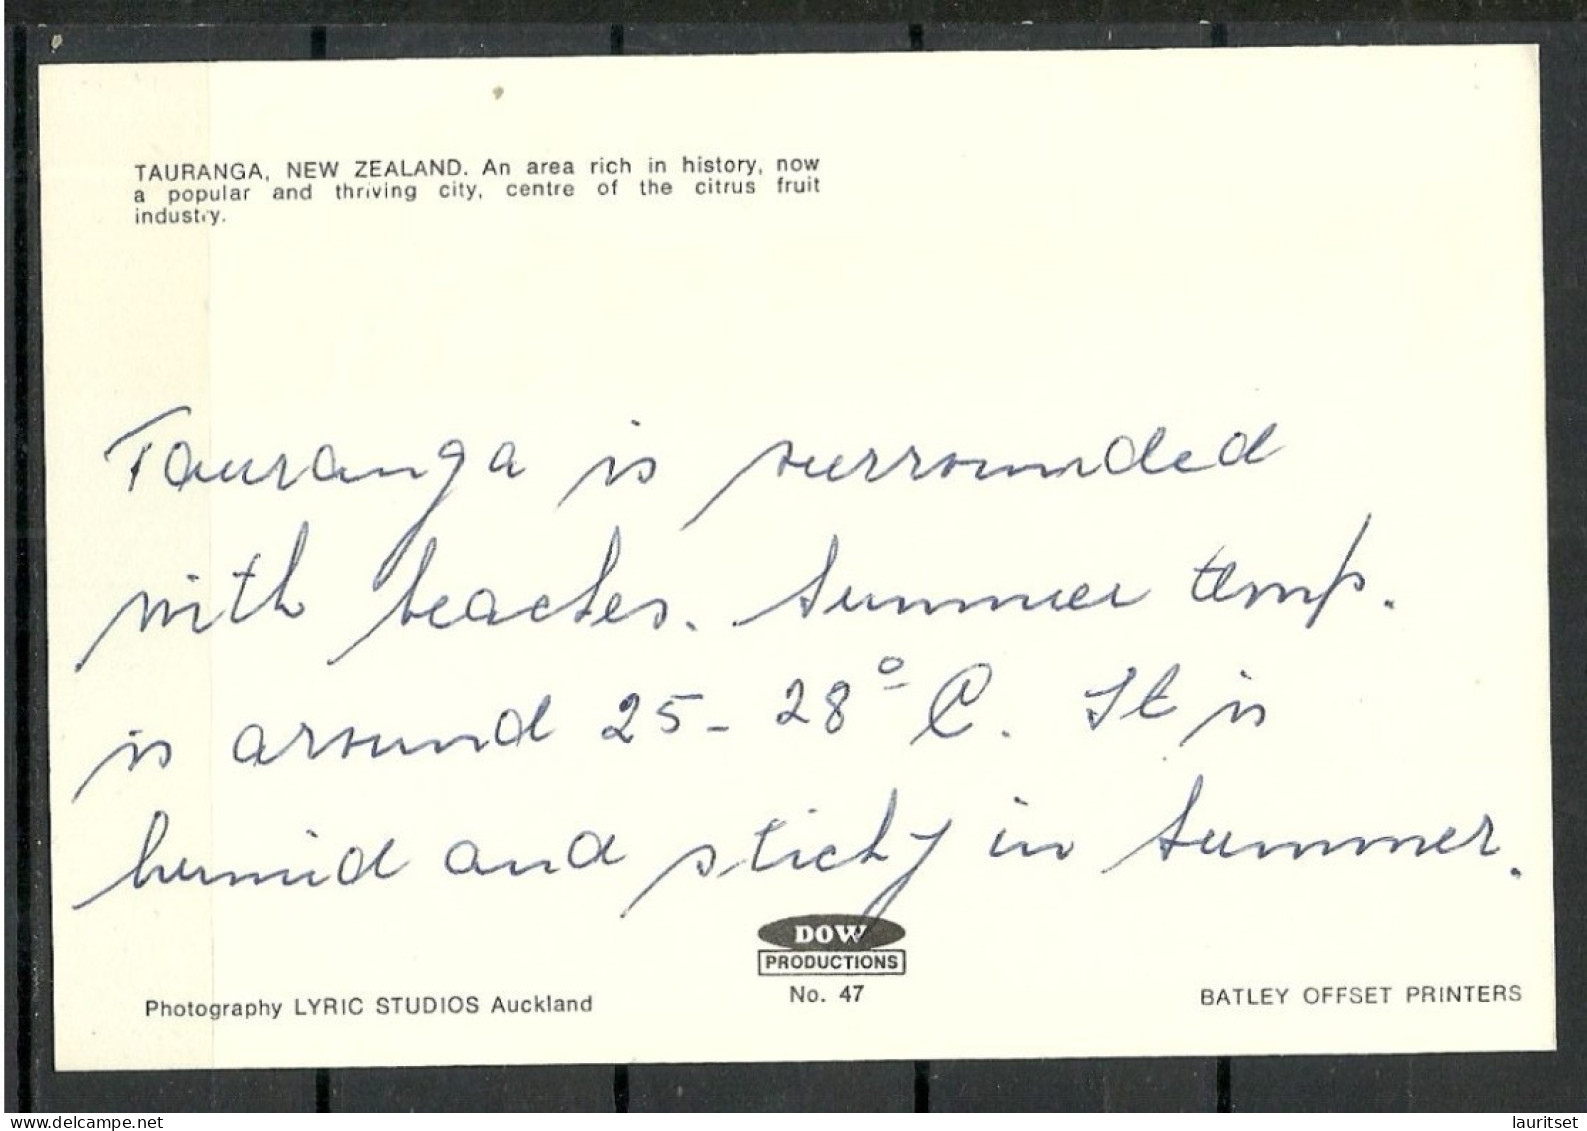 TAURANGA, NEW ZEALAND. An area rich in history, now
a popular and thriving city, centre of the citrus fruit
industry.
Tauranga is surrounded
with beaches. Summer temp.
is around 25-28° C. It is
humid and sticky in summer.
DOW
PRODUCTIONS
No. 47
Photography LYRIC STUDIOS Auckland
BATLEY OFFSET PRINTERS
www.delcampe.net
lauritset